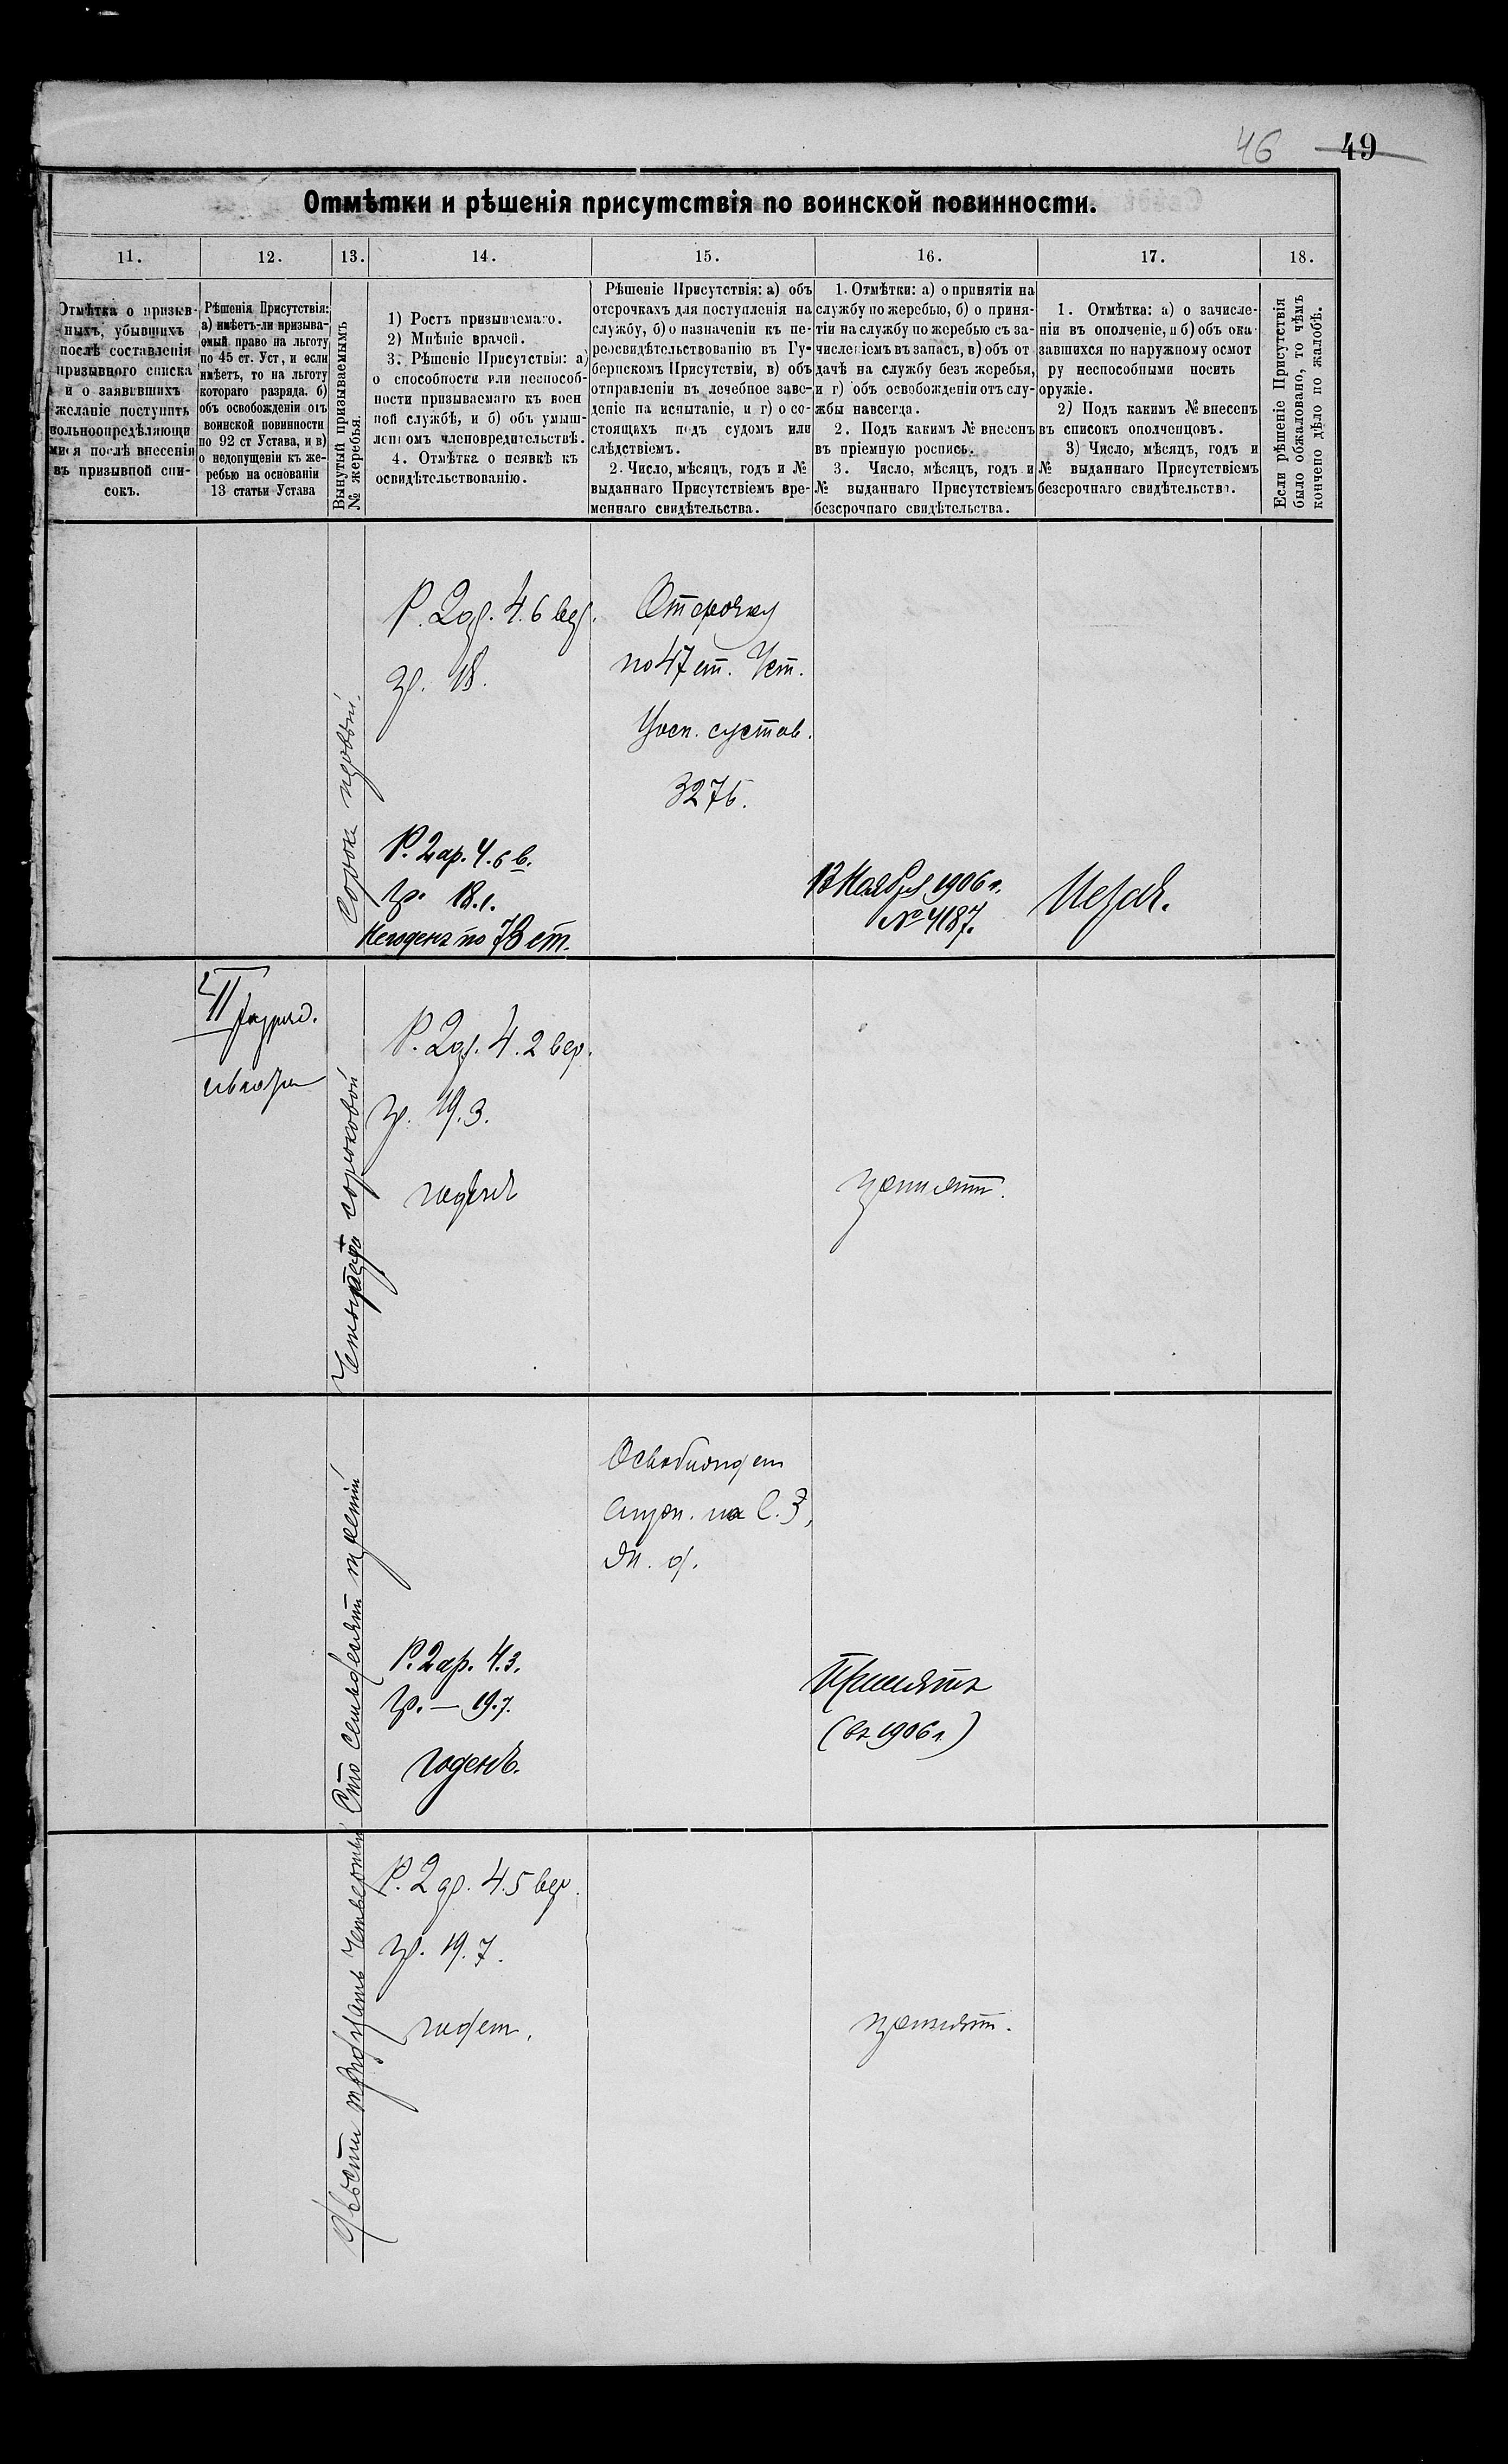 46 49
Отмѣтки и рѣшенія присутствія по воинской повинности.
11. 12. 13. 14. 15. 16. 17. 18.
Отмѣтка о призыв-
ныхъ, убывшихъ
послѣ составленія
призывного списка
и о заявившихъ
желаніе поступить
вольноопредѣляющи
мися послѣ внесенія
въ призывной спи-
сокъ.
Рѣшенія Присутствія:
а) имѣетъ-ли призыва-
емый право на льготу
по 45 ст. Уст, и если
имѣетъ, то на льготу
котораго разряда. б)
объ освобожденіи отъ
воинской повинности
по 92 ст Устава, и в)
о недопущеніи къ же-
ребью на основаніи
13 статьи Устава
Вынутый призываемымъ
№ жеребья.
1) Ростъ призываемаго.
2) Мнѣніе врачей.
3. Рѣшеніе Присутствія: а)
о способности или неспособ-
ности призываемаго къ воен
ной службѣ, и б) объ умыш-
ленномъ членовредительствѣ.
4. Отмѣтка о неявкѣ къ
освидѣтельствованію.
Рѣшеніе Присутствія: а) объ
отсрочкахъ для поступленія на
службу, б) о назначеніи къ пе-
реосвидѣтельствованію въ Гу-
бернскомъ Присутствіи, в) объ
отправленіи въ лечебное заве-
деніе на испытаніе, и г) о со-
стоящихъ подъ судомъ или
слѣдствіемъ.
2. Число, мѣсяцъ, годъ и №
выданнаго Присутствіемъ вре-
меннаго свидѣтельства.
1. Отмѣтки: а) о принятіи на
службу по жеребью, б) о приня-
тіи на службу по жеребью съ за-
численіемъ въ запасъ, в) объ от
дачѣ на службу безъ жеребья,
и г) объ освобожденіи отъ слу-
жбы навсегда.
2. Подъ какимъ № внесенъ
въ пріемную роспись.
3. Число, мѣсяцъ, годъ и
№ выданнаго Присутствіемъ
безсрочнаго свидѣтельства.
1. Отмѣтка: а) о зачисле-
ніи въ ополченіе, и б) объ ока
завшихся по наружному осмот
ру неспособными носить
оружіе.
2) Подъ какимъ № внесенъ
въ списокъ ополченцовъ.
3) Число, мѣсяцъ, годъ и
№ выданнаго Присутствіемъ
безсрочнаго свидѣтельства.
Если рѣшеніе Присутствія
было обжаловано, то чѣмъ
кончено дѣло по жалобѣ.
Сорокъ первый.
Р. 2 др. 4. 6 вер.
гр. 18.
Отсрочку
по 47 ст. Уст.
сустав.
3276.
Р. 2 ар. 4. 6 в.
гр. 18.1.
Негоденъ по 78 ст.
13 Ноября 1906 г.
№ 4187.
II разряд.
сороковой
Р. 2 др. 4. 2 вер.
гр. 19. 3.
годенъ
принят.
Сто семьдесят третій
Р. 2 ар. 4. 3.
гр. — 19. 7.
годенъ.
Принятъ
(въ 1906 г.)
Двѣсти тридцать четвертый
Р. 2 др. 4. 5 вер.
гр. 19. 7.
годен.
принят.